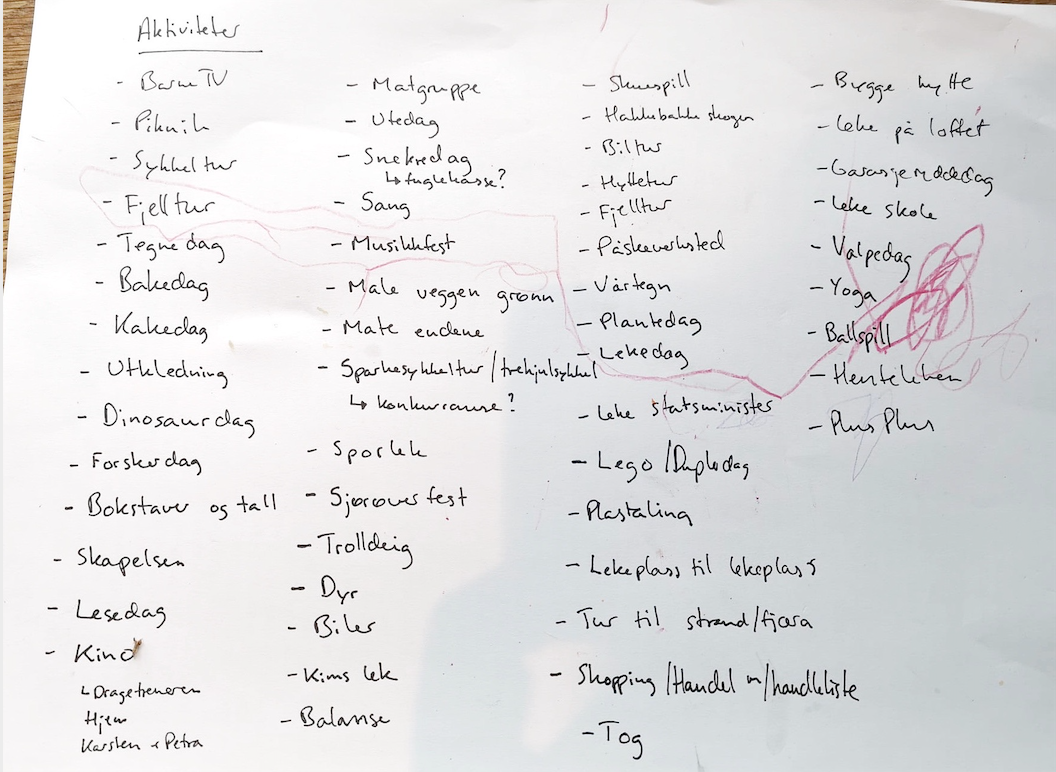 Aktiviteter
- Barne TV
- Piknik
- Sykkeltur
- Fjelltur
- Tegnedag
- Bakedag
- Kakedag
- Utkledning
- Dinosaurdag
- Forskerdag
- Bokstaver og tall
- Skapelsen
- Lesedag
- Kino
↳ Dragetreneren
Hjem
Karsten + Petra
- Matgruppe
- Utedag
- Snekredag
↳ fuglekasse?
- Sang
- Musikkfest
- Male veggen grønn
- Mate endene
- Sparkesykkeltur/trehjulsykkel
↳ konkurranse?
- Sporlek
- Sjørøverfest
- Trolldeig
- Dyr
- Biler
- Kims lek
- Balanse
- Skuespill
- Hakkebakkeskogen
- Biltur
- Hyttetur
- Fjelltur
- Påskeverksted
- Vårtegn
- Plantedag
- Lekedag
- Leke statsminister
- Lego/Duplodag
- Plastalina
- Lekeplass til lekeplass
- Tur til strand/fjæra
- Shopping/Handel m/handleliste
- Tog
- Bygge hytte
- Leke på loftet
- Garasjeryddedag
- Leke skole
- Valpedag
- Yoga
- Ballspill
- Henteleken
- PlusPlus